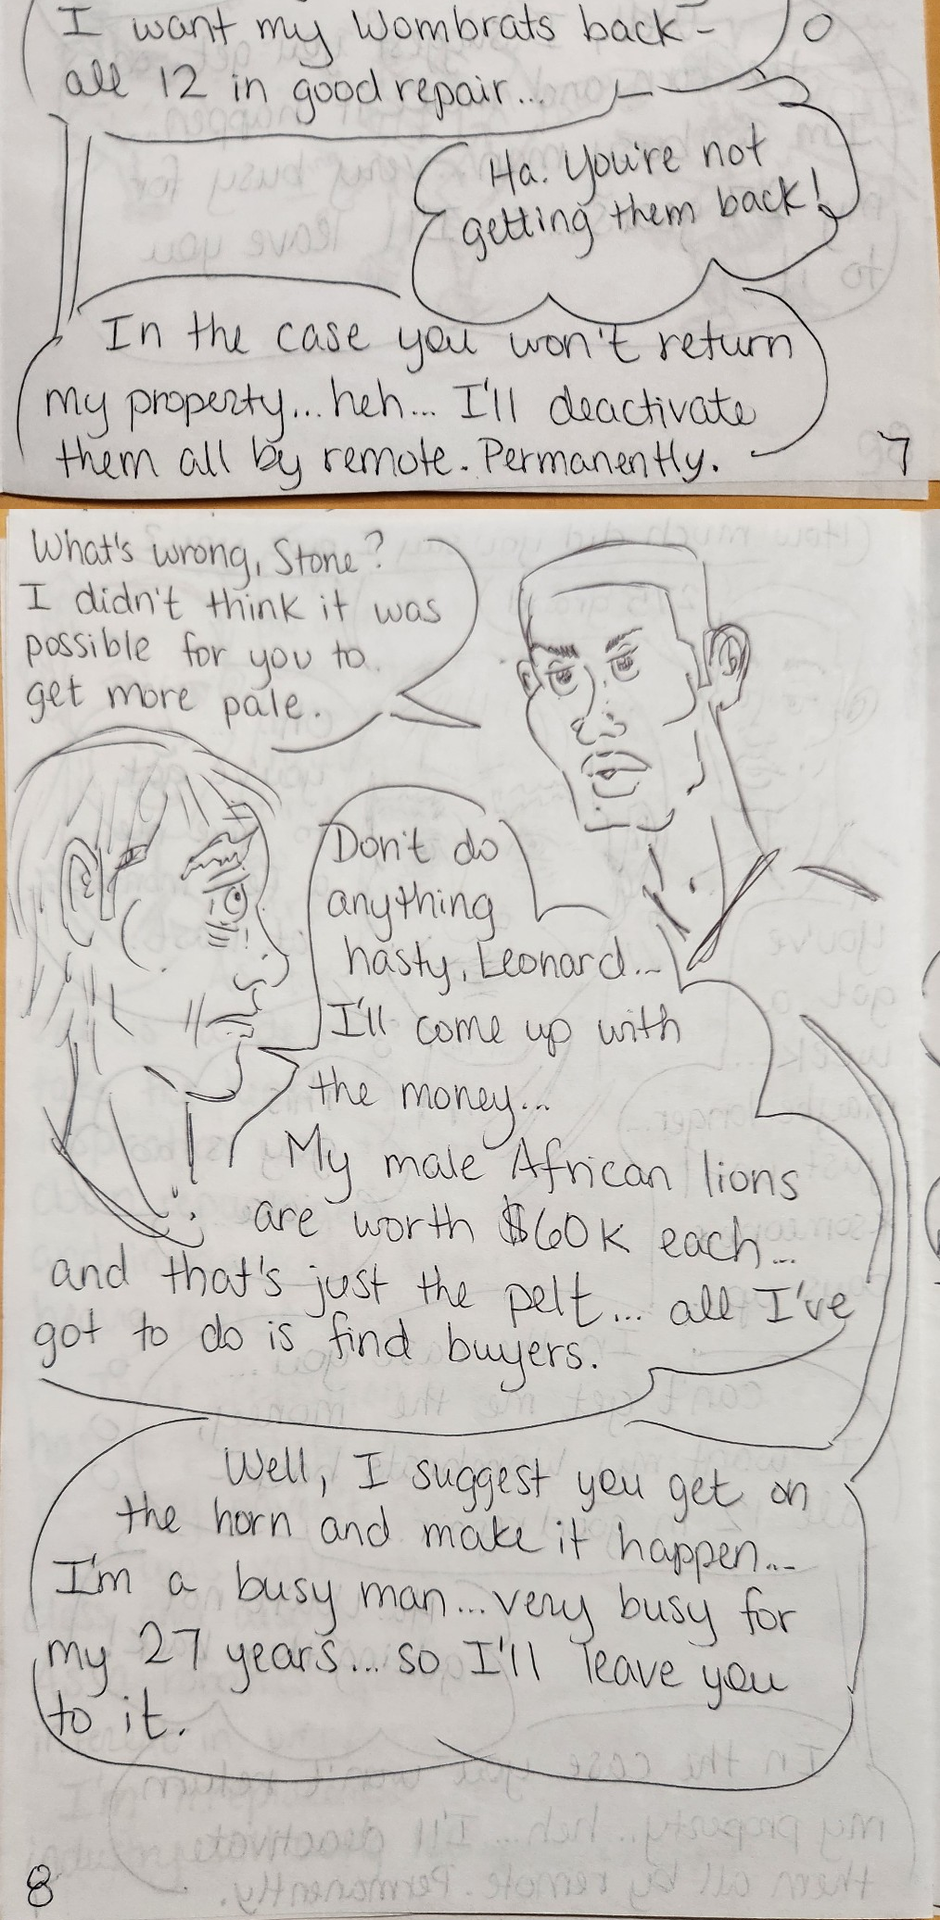 I want my Wombrats back-
all 12 in good repair...
Ha. You're not
getting them back!
In the case you won't return
my property...heh... I'll deactivate
them all by remote. Permanently.
7
What's wrong, Stone?
I didn't think it was
possible for you to
get more pale.
Don't do
anything
hasty, Leonard...
I'll come up with
the money...
My male African lions
are worth $60K each...
and that's just the pelt... all I've
got to do is find buyers.
Well, I suggest you get on
the horn and make it happen...
I'm a busy man...very busy for
my 27 years...so I'll leave you
to it.
8